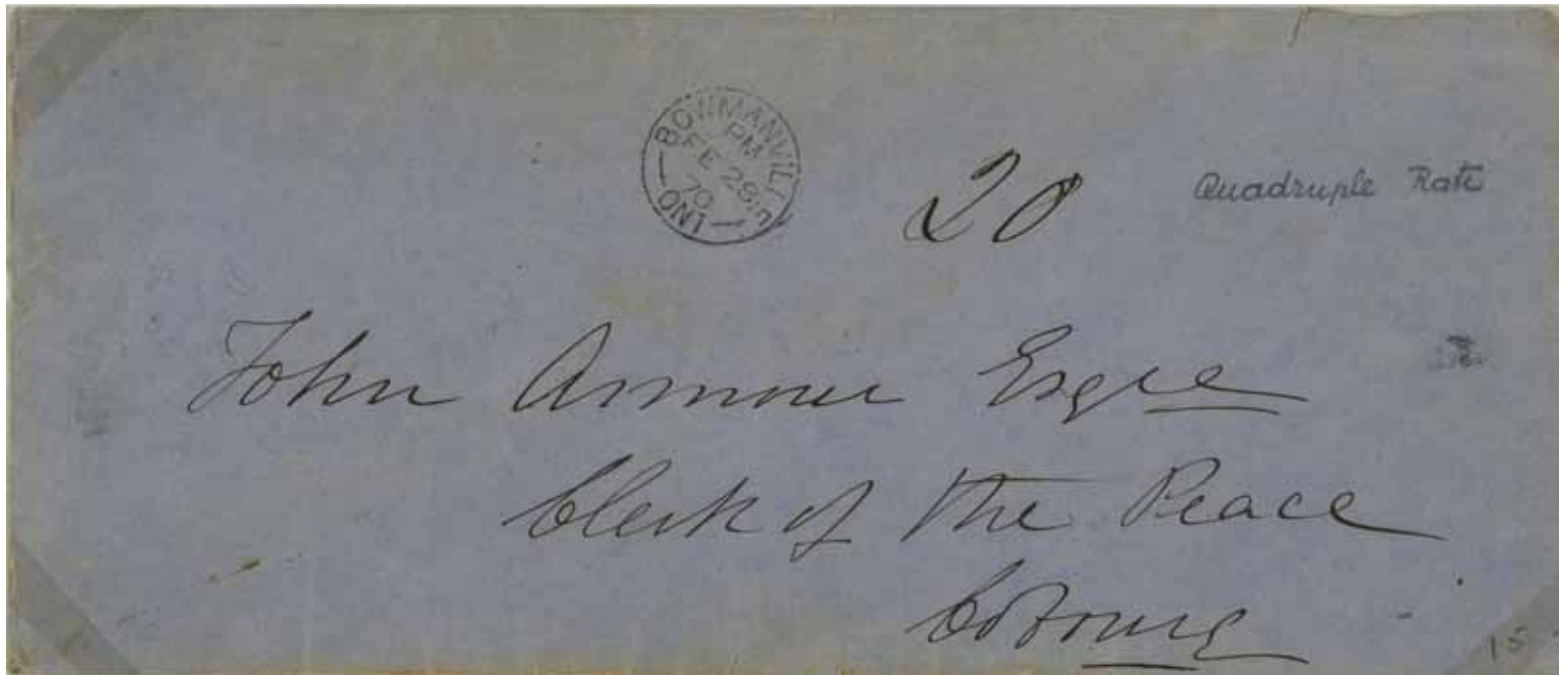 BOWMANVILLE
PM
FE 28
70
ONT
20
Quadruple Rate
John Armour Esqre
Clerk of the Peace
Cobourg
15